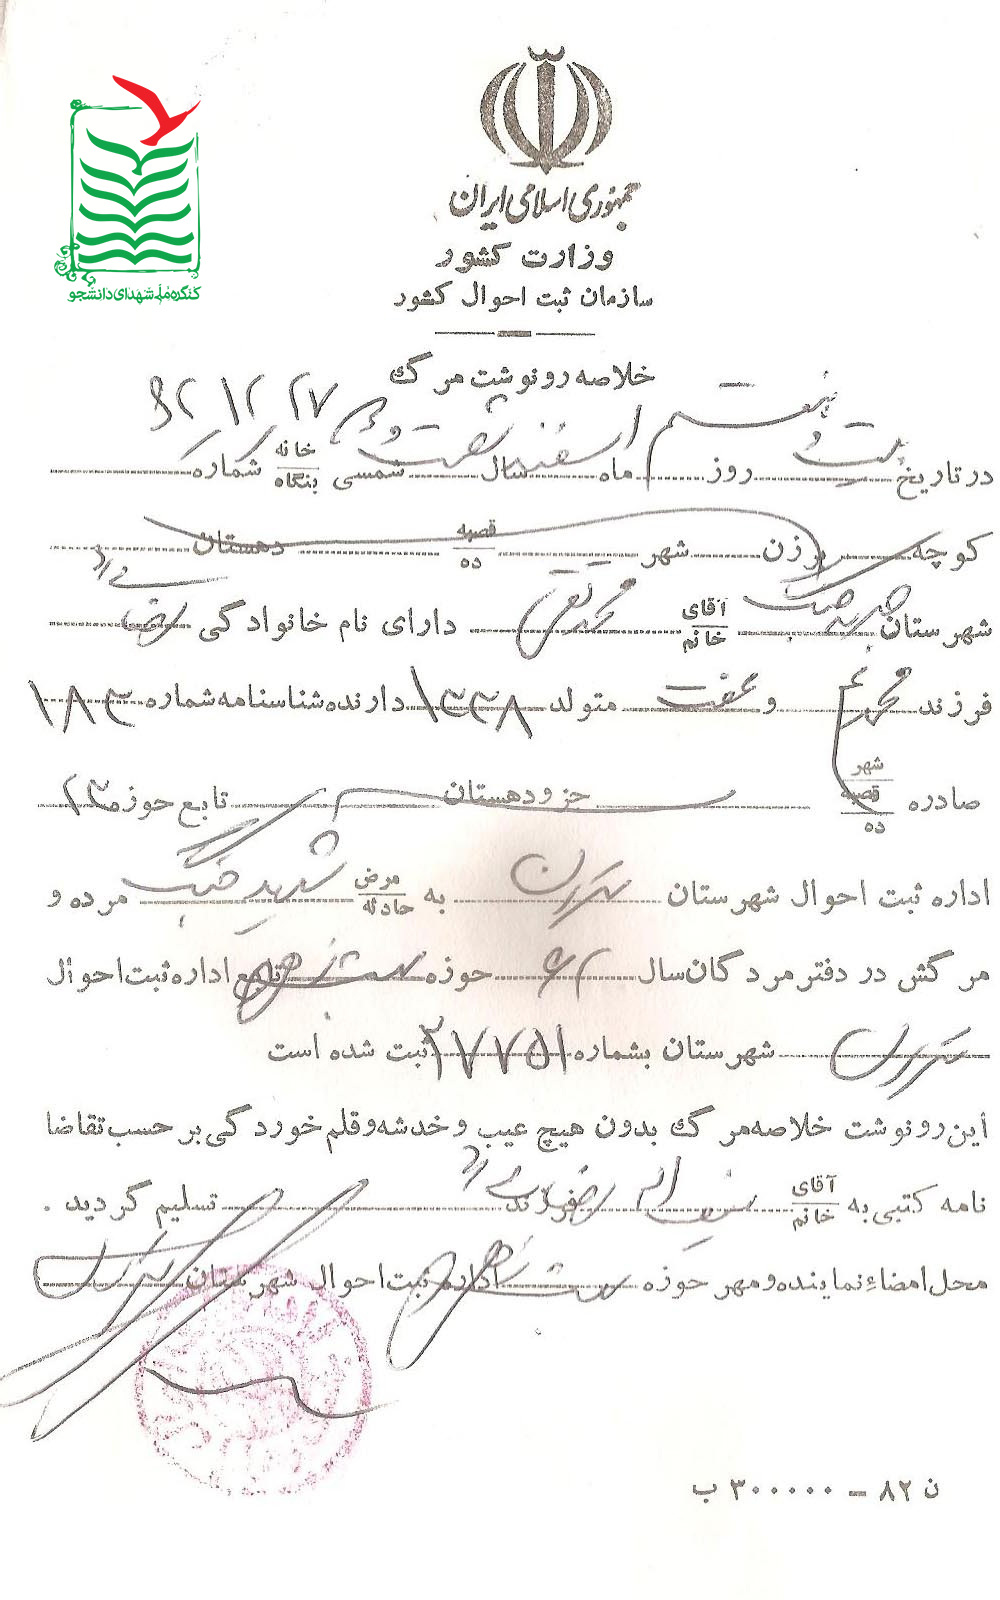 کنگره ملی شهدای دانشجو
جمهوری اسلامی ایران
وزارت کشور
سازمان ثبت احوال کشور
خلاصه رونوشت مرگ
۶۲/۱۲/۲۷
در تاریخ بیست و هفتم روز ماه اسفند سال شصت و دو شمسی خانه بنگاه شماره
کوچه برزن شهر قصبه ده دهستان
شهرستان آقای خانم محمد تقی دارای نام خانوادگی رضائی
فرزند محرم و عفت متولد ۱۳۳۸ دارنده شناسنامه شماره ۱۸۳
صادره شهر قصبه ده جزو دهستان تابع حوزه ۲۳
اداره ثبت احوال شهرستان تهران به مرض حادثه شهید جنگ مرده و
مرگش در دفتر مردگان سال ۶۳ حوزه تابع اداره ثبت احوال
تهران شهرستان بشماره ۲۷۷۵۱ ثبت شده است
این رونوشت خلاصه مرگ بدون هیچ عیب و خدشه و قلم خوردگی بر حسب تقاضا
نامه کتبی به آقای خانم فرزند تسلیم گردید .
محل امضاء نماینده و مهر حوزه اداره ثبت احوال شهرستان تهران
ن ۸۲ – ۳۰۰۰۰۰ ب